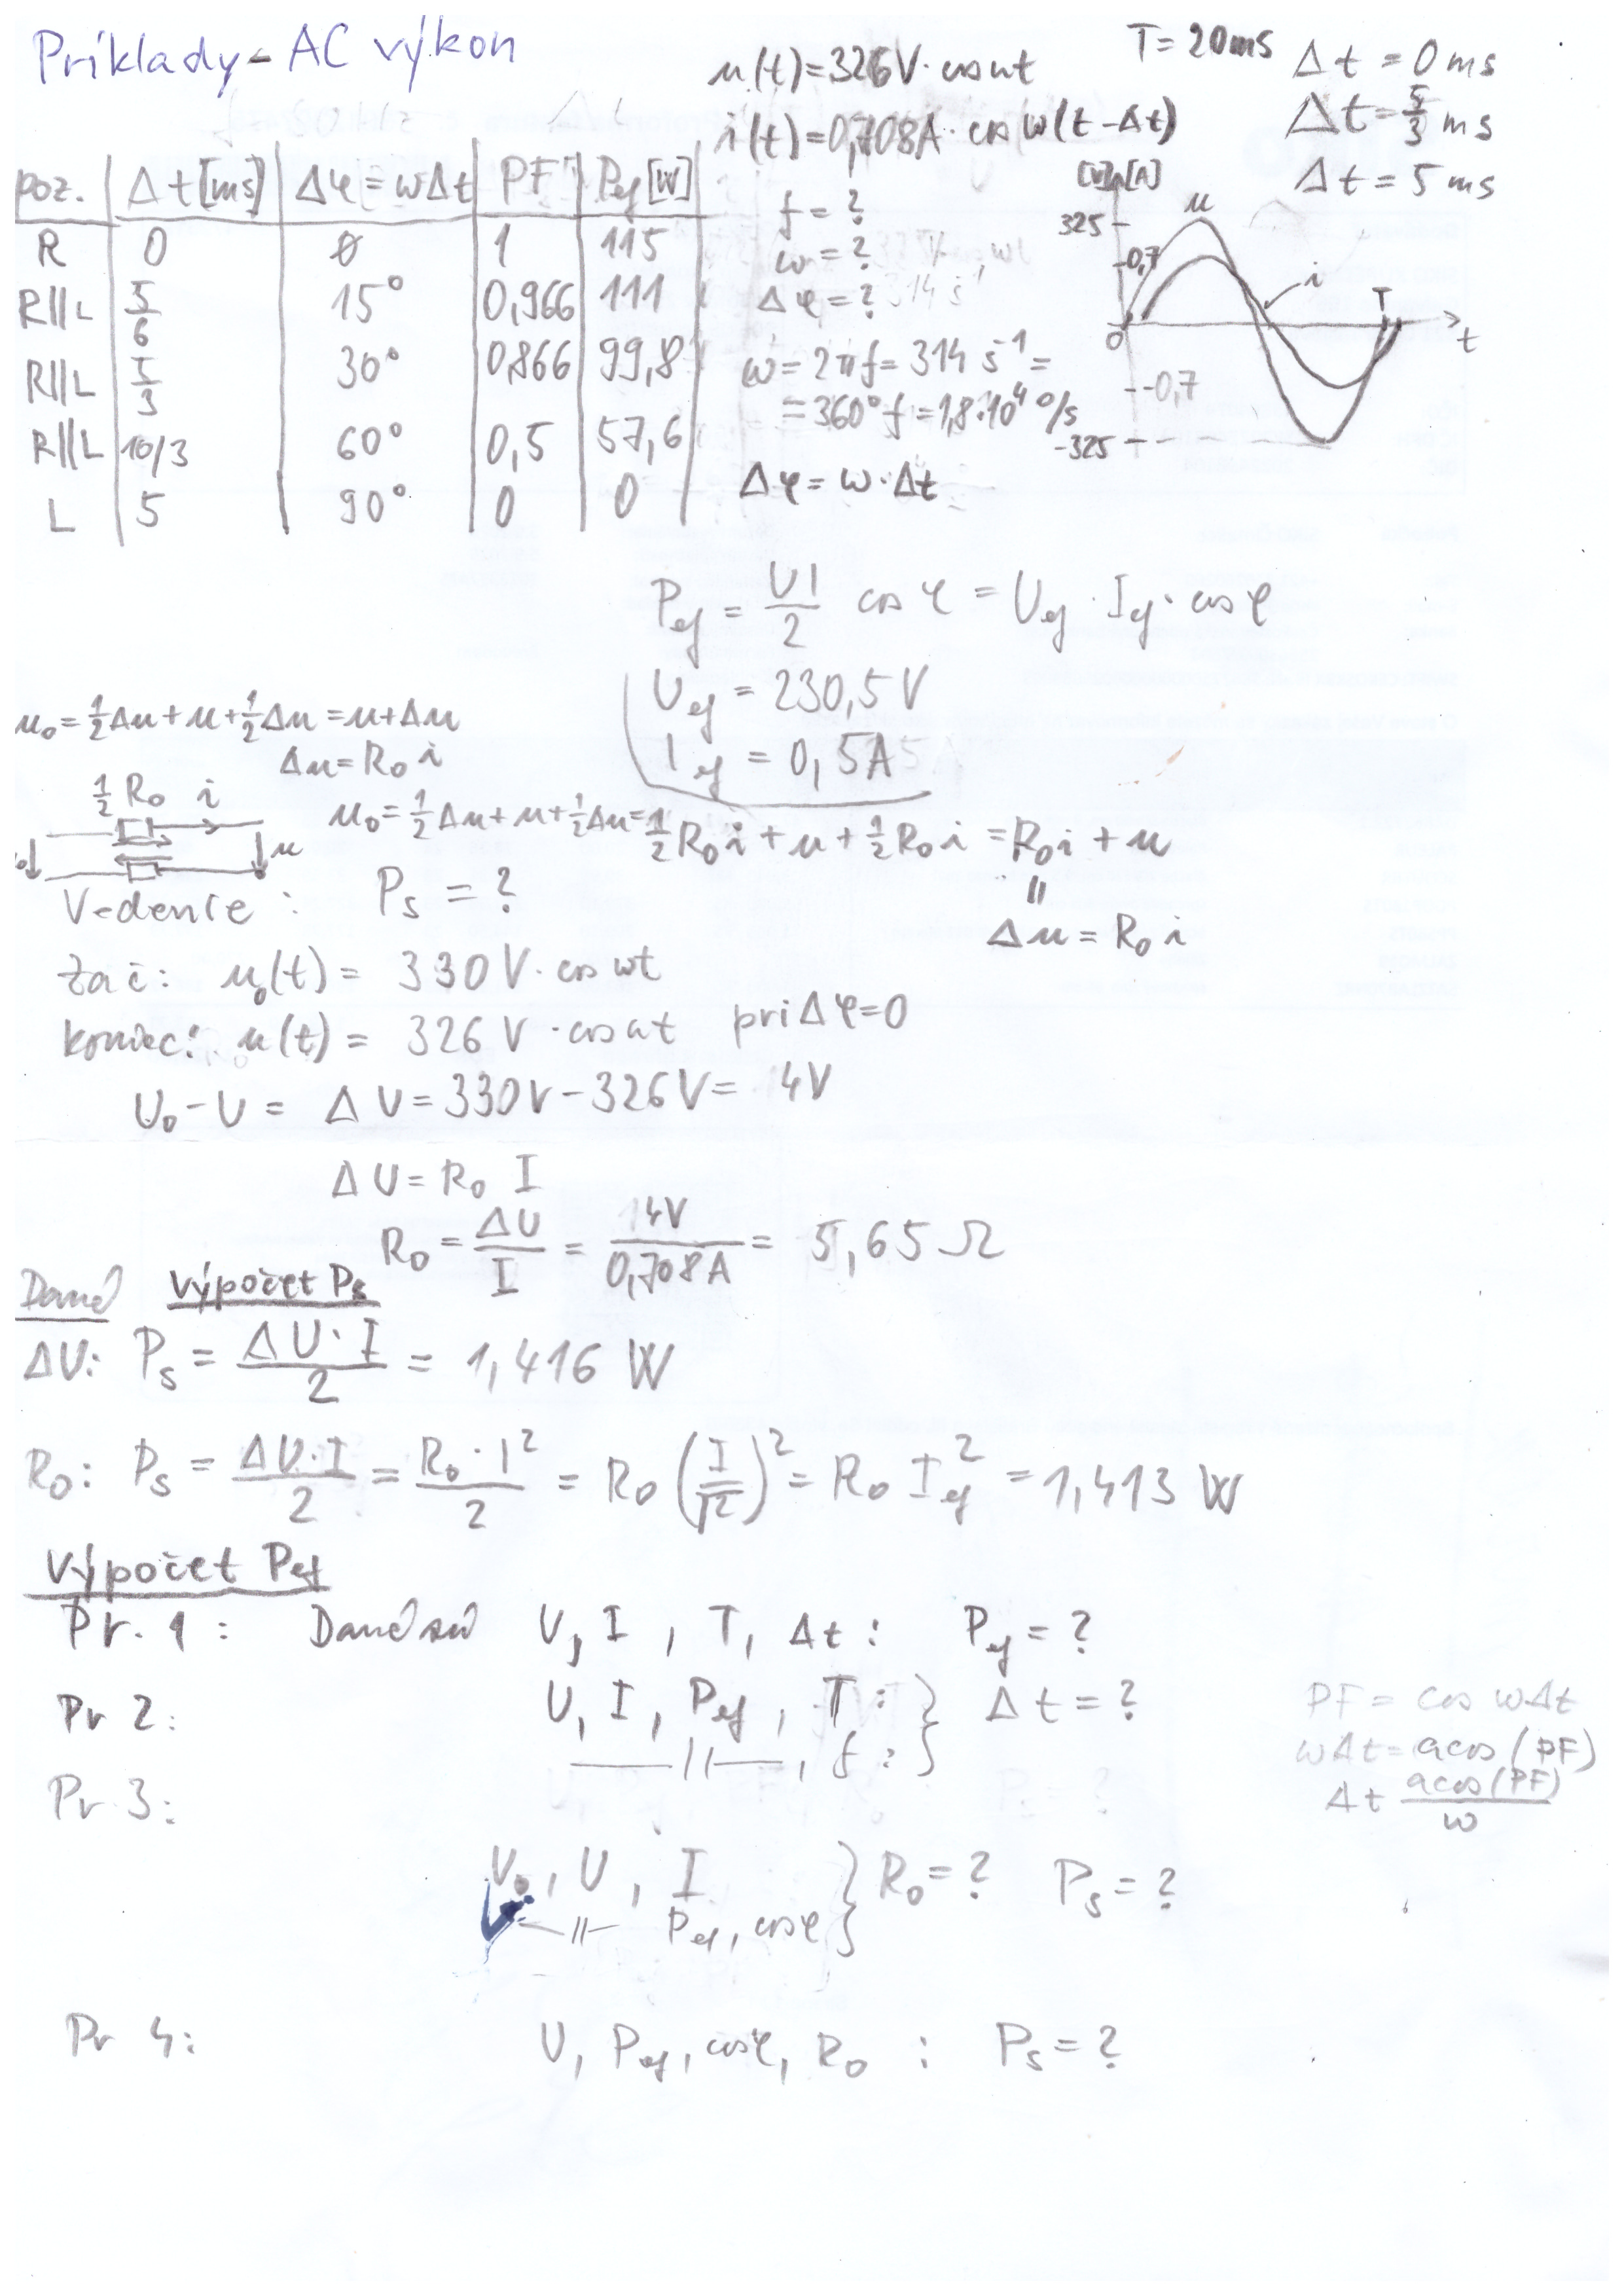 Príklady - AC výkon
u(t)=326V·cosωt
i(t)=0,708A·cosω(t-Δt)
T=20ms
Δt=0ms
Δt=5/3 ms
Δt=5ms
poz. | Δt[ms] | Δφ=ωΔt | PF | Pef[W]
R | 0 | 0 | 1 | 115
R||L | 5/6 | 15° | 0,966 | 111
R||L | 5/3 | 30° | 0,866 | 99,8
R||L | 10/3 | 60° | 0,5 | 57,6
L | 5 | 90° | 0 | 0
f=?
ω=?
Δφ=?
ω=2πf=314 s⁻¹=
=360°f=1,8·10⁴ °/s
Δφ=ω·Δt
[V],[A]
325
0,7
u
i
T
0
t
-0,7
-325
Pef = UI/2 cosφ = Uef·Ief·cosφ
Uef = 230,5V
Ief = 0,5A
u₀=½Δu+u+½Δu=u+Δu
Δu=R₀i
½R₀ i
u
u₀=½Δu+u+½Δu=½R₀i+u+½R₀i=R₀i+u
||
Δu=R₀i
Vedenie: Ps=?
zač: u₀(t)= 330V·cosωt
koniec: u(t)= 326V·cosωt pri Δφ=0
U₀-U= ΔU=330V-326V= 4V
ΔU=R₀ I
R₀=ΔU/I = 4V/0,708A = 5,65Ω
Dané Výpočet Ps
ΔU: Ps = ΔU·I/2 = 1,416 W
R₀: Ps = ΔU·I/2 = R₀·I²/2 = R₀(I/√2)² = R₀ Ief² = 1,413 W
Výpočet Pef
Pr. 1: Dané sú U, I, T, Δt: Pef=?
Pr 2: U, I, Pef, T: } Δt=?
—||—, f: }
PF= cos ωΔt
ωΔt=acos(PF)
Δt acos(PF)/ω
Pr 3:
U₀, U, I } R₀=? Ps=?
—||— Pef, cosφ }
Pr 4: U, Pef, cosφ, R₀: Ps=?